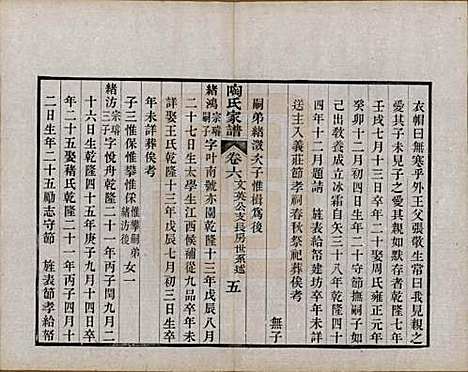 衣帽曰無寒乎外王父張敬生常曰我見親之
愛其子未見子之愛其親如默存者乾隆七年
壬戌七月十三日卒年二十娶周氏雍正元年
癸卯十二月二十日生乾隆十年撫嗣子如
己出幼失怙成立冰霜自矢三十八年乾隆四十
四年十二月題請 旌表給帑建坊卒年未詳
送主入義莊節孝祠春秋祭祀葬俟考
無子
嗣弟緒澂次子惟楫為後
陶氏家譜 卷六 文英公支長房世系述 五
緒鴻 宗瑜嗣子 字叶南號亦園乾隆十三年戊辰八月
二十七日生太學生江西候補從九品卒年未
詳娶王氏乾隆十三年戊辰七月初三日生卒
年未詳葬俟考
子三惟保惟攀惟保 緒汸後 惟攀嗣弟 女一
緒汸 宗瑜三子 字悅舟乾隆二十一年丙子閏九月二
十六日生乾隆四十五年庚子九月十四日卒
年二十五娶褚氏乾隆二十一年丙子四月十
二日生年二十五勵志守節 旌表節孝給帑